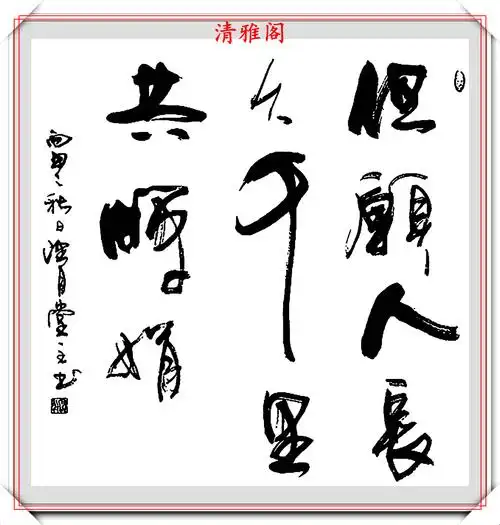 清雅阁
但願人長
久千里
共嬋娟
丙申之秋日月堂主书